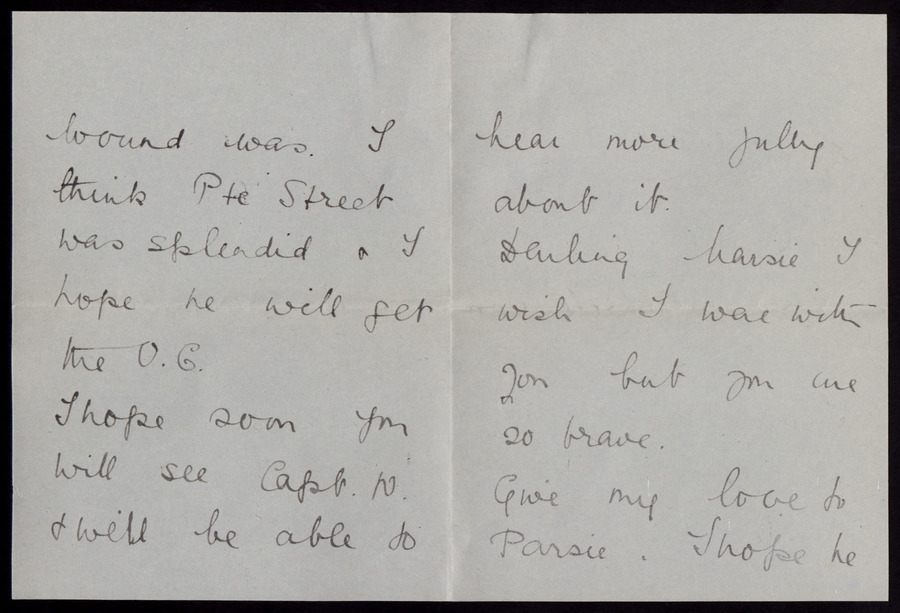 wound was. I
think Pte Street
was splendid & I
hope he will get
the V.C.
I hope soon you
will see Capt. W.
& will be able to
hear more fully
about it.
Darling Marsie I
wish I was with
you but you are
so brave.
Give my love to
Parsie. I hope he